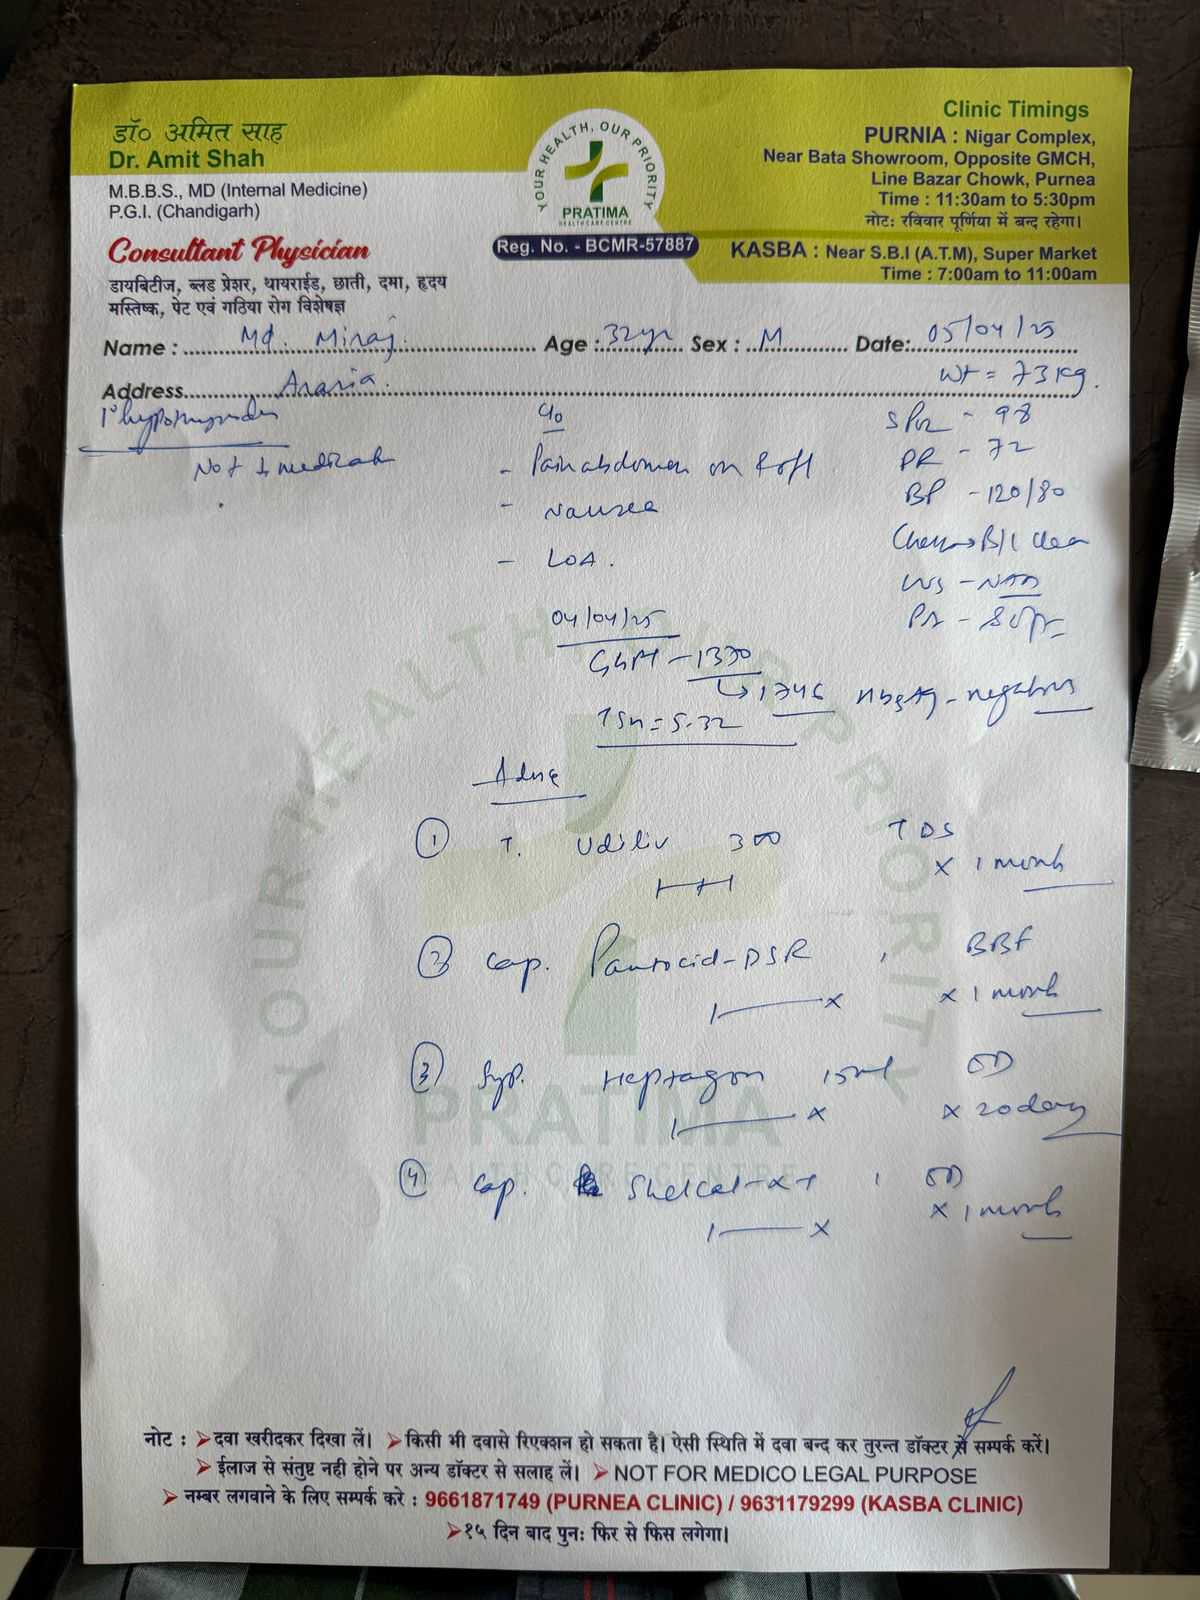 डॉ० अमित साह
Dr. Amit Shah
M.B.B.S., MD (Internal Medicine)
P.G.I. (Chandigarh)
Consultant Physician
डायबिटीज, ब्लड प्रेशर, थायराईड, छाती, दमा, हृदय
मस्तिष्क, पेट एवं गठिया रोग विशेषज्ञ
YOUR HEALTH, OUR PRIORITY
PRATIMA
HEALTH CARE CENTRE
Reg. No. - BCMR-57887
Clinic Timings
PURNIA : Nigar Complex,
Near Bata Showroom, Opposite GMCH,
Line Bazar Chowk, Purnea
Time : 11:30am to 5:30pm
नोट: रविवार पूर्णिया में बन्द रहेगा।
KASBA : Near S.B.I (A.T.M), Super Market
Time : 7:00am to 11:00am
Name : Md. Miraj Age : 32yr Sex : M Date: 05/04/25
Address Araria. Wt = 73 kg.
Not
c/o
- Pain abdomen on & off
- Nausea
- LOA.
SPO2 - 98
PR - 72
BP - 120/80
Chest → B/L clear
- NAD
PA - Soft
04/04/25
1370
→ 1746 HbsAg - negative
TSH = 5.32
Advice
1 T. Udiliv 300 TDS
x 1 month
2 Cap. Pantocid-DSR, BBF
x 1 month
3 Syp. Heptagon 15ml OD
x 20 days
4 Cap. Shelcal-XT, OD
x 1 month
YOUR HEALTH, OUR PRIORITY
PRATIMA
HEALTH CARE CENTRE
नोट : ➢दवा खरीदकर दिखा लें। ➢किसी भी दवासे रिएक्शन हो सकता है। ऐसी स्थिति में दवा बन्द कर तुरन्त डॉक्टर से सम्पर्क करें।
➢ईलाज से संतुष्ट नही होने पर अन्य डॉक्टर से सलाह लें। ➢NOT FOR MEDICO LEGAL PURPOSE
➢नम्बर लगवाने के लिए सम्पर्क करे : 9661871749 (PURNEA CLINIC) / 9631179299 (KASBA CLINIC)
➢१५ दिन बाद पुनः फिर से फिस लगेगा।